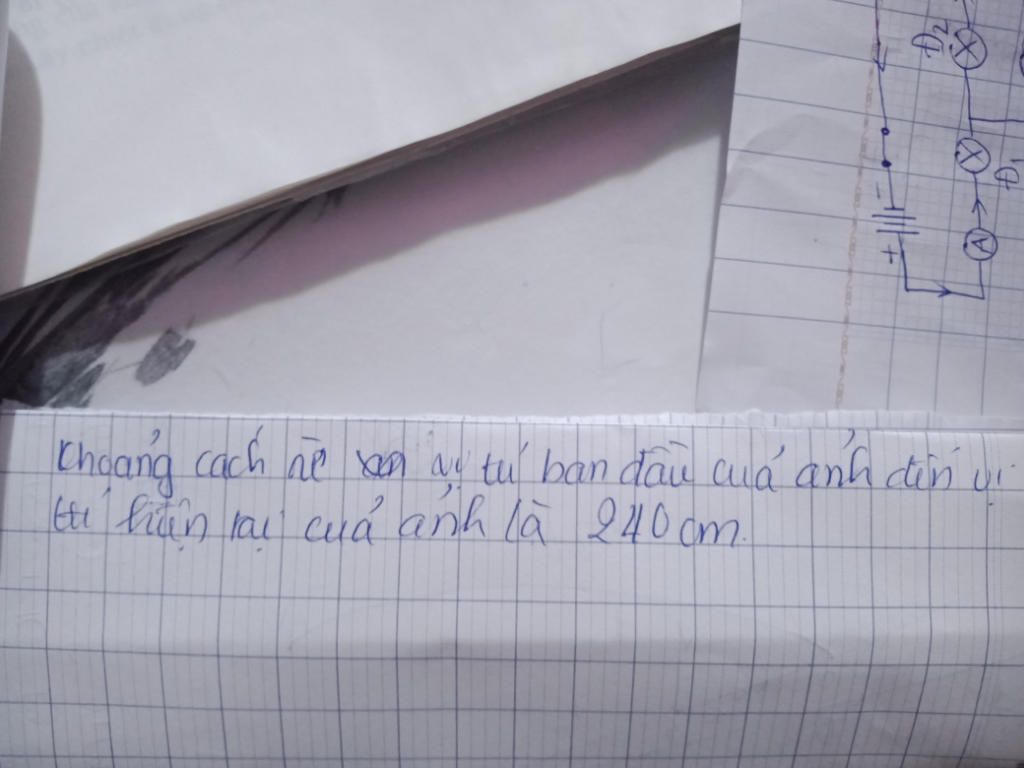 Khoảng cách về vị trí ban đầu của ảnh đến vị
trí hiện tại của ảnh là 240 cm.
Đ2
Đ1
A
+
-